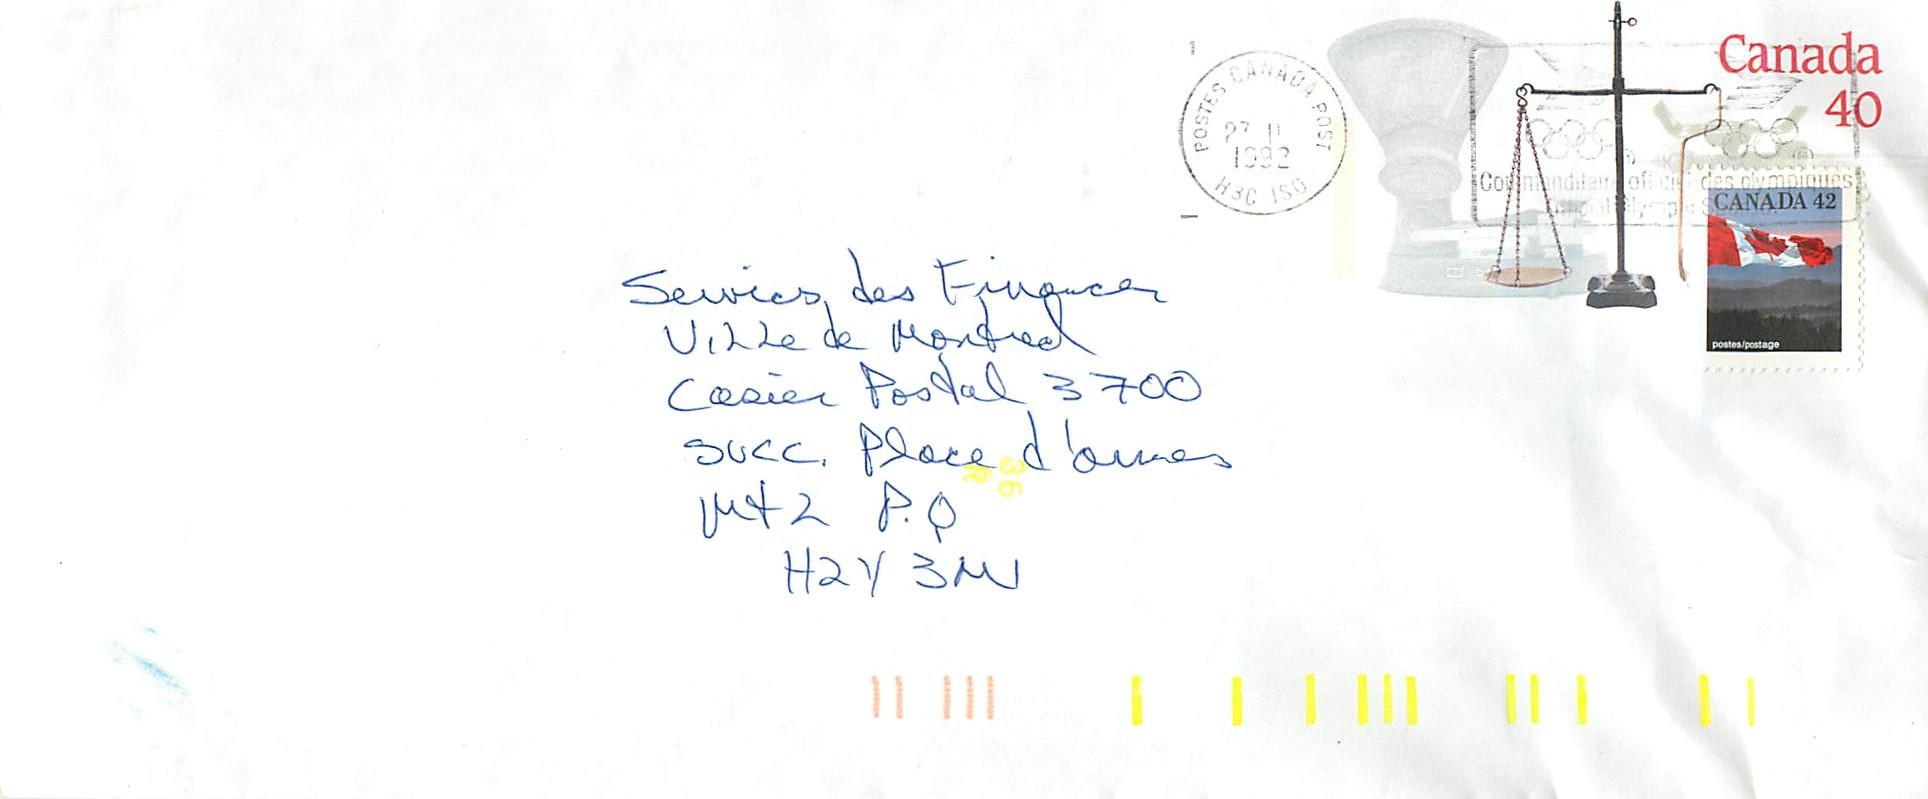 POSTES CANADA POST
27 II
1992
H3C 1S0
Canada
40
Commanditaire officiel des olympiques
CANADA 42
postes/postage
Services des Finances
Ville de Montreal
Casier Postal 3700
succ. Place d'armes
Mtl P.Q
H2Y 3M
36
R